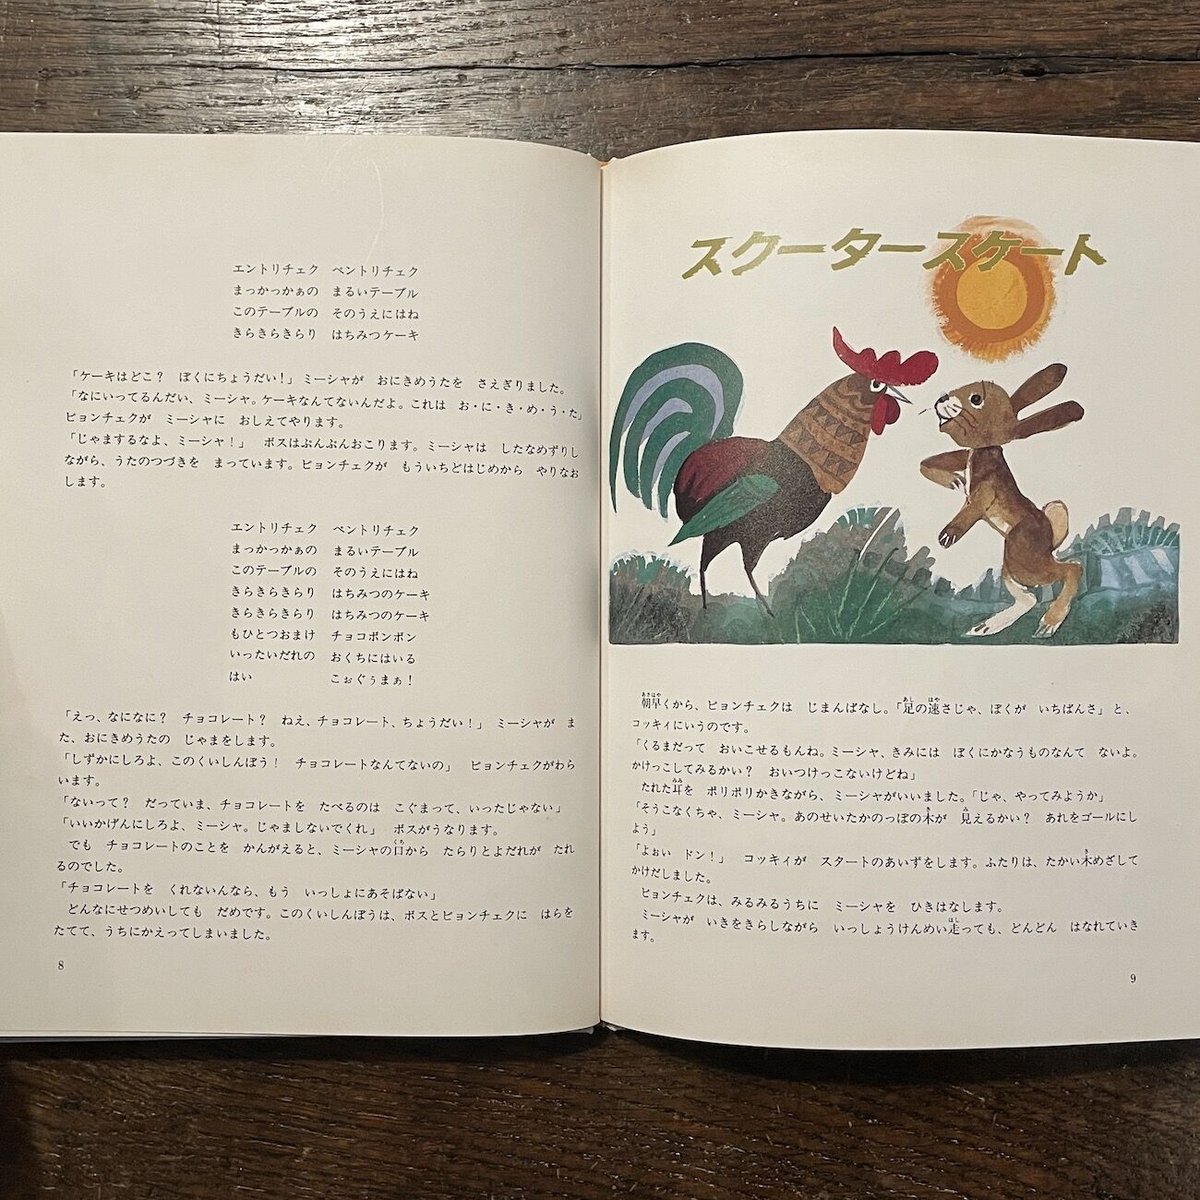 エントリチェク　ペントリチェク
まっかっかぁの　まるいテーブル
このテーブルの　そのうえにはね
きらきらきらり　はちみつケーキ
「ケーキはどこ？　ぼくにちょうだい！」ミーシャが　おにきめうたを　さえぎりました。
「なにいってるんだい、ミーシャ。ケーキなんてないんだよ。これは　お・に・き・め・う・た」
ピョンチェクが　ミーシャに　おしえてやります。
「じゃまするなよ、ミーシャ！」　ボスはぷんぷんおこります。ミーシャは　したなめずりし
ながら、うたのつづきを　まっています。ピョンチェクが　もういちどはじめから　やりなお
します。
エントリチェク　ペントリチェク
まっかっかぁの　まるいテーブル
このテーブルの　そのうえにはね
きらきらきらり　はちみつのケーキ
きらきらきらり　はちみつのケーキ
もひとつおまけ　チョコボンボン
いったいだれの　おくちにはいる
はい　こぉぐぅまぁ！
「えっ、なになに？　チョコレート？　ねえ、チョコレート、ちょうだい！」　ミーシャが　ま
た、おにきめうたの　じゃまをします。
「しずかにしろよ、このくいしんぼう！　チョコレートなんてないの」　ピョンチェクがわら
います。
「ないって？　だっていま、チョコレートを　たべるのは　こぐまって、いったじゃない」
「いいかげんにしろよ、ミーシャ。じゃましないでくれ」　ボスがうなります。
でも　チョコレートのことを　かんがえると、ミーシャの口から　たらりとよだれが　たれ
るのでした。
「チョコレートを　くれないんなら、もう　いっしょにあそばない」
どんなにせつめいしても　だめです。このくいしんぼうは、ボスとピョンチェクに　はらを
たてて、うちにかえってしまいました。
8
スクータースケート
朝早くから、ピョンチェクは　じまんばなし。「足の速さじゃ、ぼくが　いちばんさ」と、
コッキィにいうのです。
「くるまだって　おいこせるもんね。ミーシャ、きみには　ぼくにかなうものなんて　ないよ。
かけっこしてみるかい？　おいつけっこないけどね」
たれた耳を　ポリポリかきながら、ミーシャがいいました。「じゃ、やってみようか」
「そうこなくちゃ、ミーシャ。あのせいたかのっぽの木が　見えるかい？　あれをゴールにし
よう」
「よぉい　ドン！」　コッキィが　スタートのあいずをします。ふたりは、たかい木めざして
かけだしました。
ピョンチェクは、みるみるうちに　ミーシャを　ひきはなします。
ミーシャが　いきをきらしながら　いっしょうけんめい走っても、どんどん　はなれていき
ます。
9